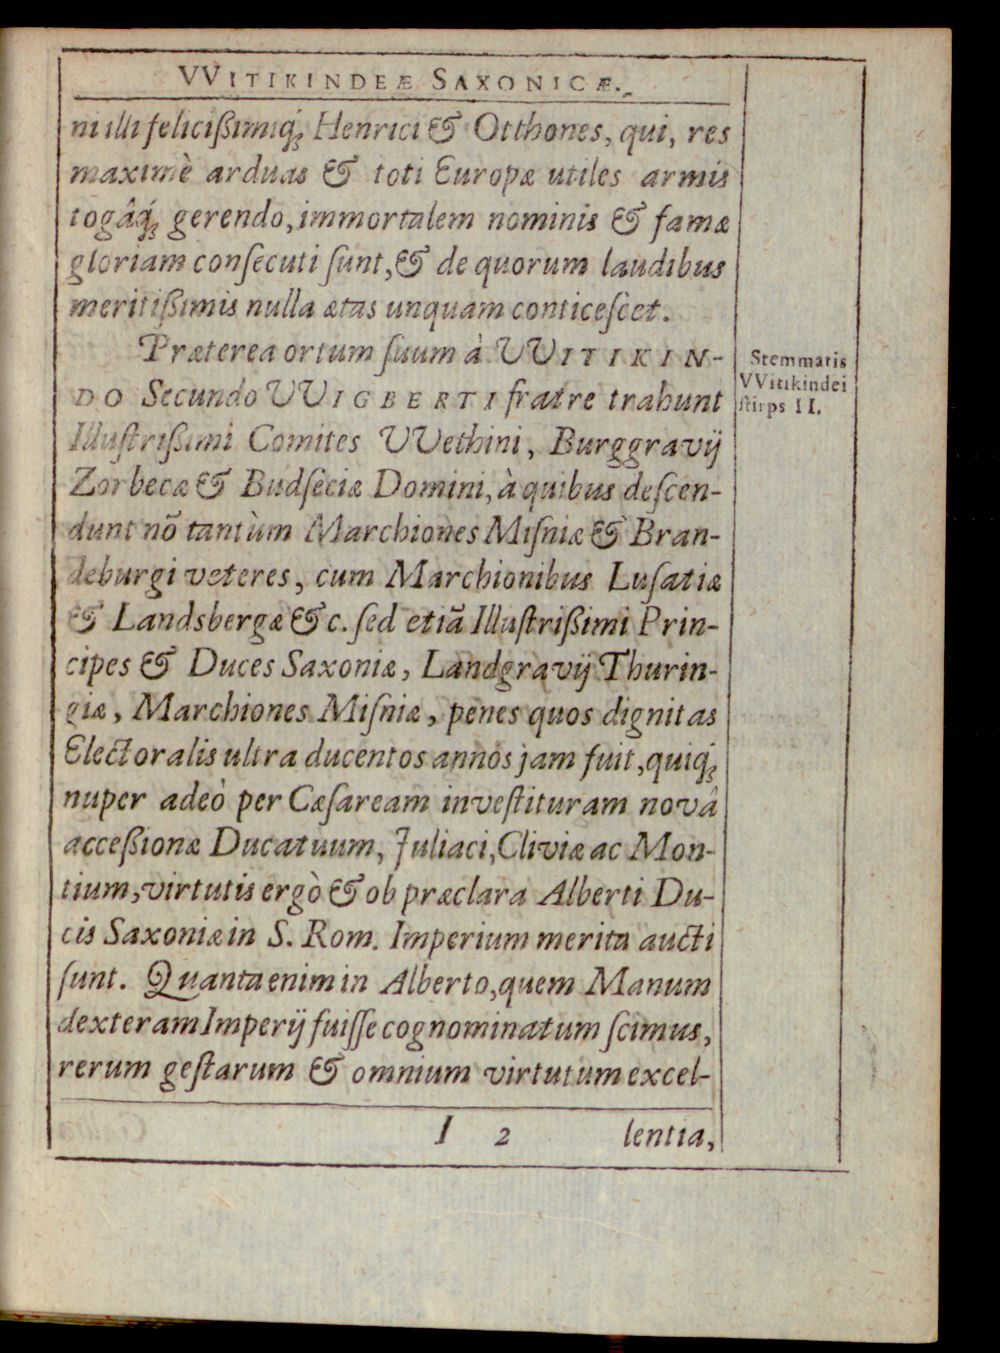 VVITIKINDEÆ SAXONICÆ.
ni illi felicißimiq́ꝫ Henrici & Otthones, qui, res
maximè arduas & toti Europæ utiles armis
togâq́ꝫ gerendo, immortalem nominis & famæ
gloriam conſecuti ſunt, & de quorum laudibus
meritißimis nulla ætas unquam conticeſcet.
Præterea ortum ſuum à VVITIKIN-
DO Secundo VVIGBERTI fratre trahunt
Illuſtrißimi Comites VVethini, Burggravij
Zorbecæ & Budſeciæ Domini, à quibus deſcen-
dunt nõ tantùm Marchiones Miſniæ & Bran-
deburgi veteres, cum Marchionibus Luſatiæ
& Landsbergæ &c. ſed etiã Illuſtrißimi Prin-
cipes & Duces Saxoniæ, Landgravij Thurin-
giæ, Marchiones Miſniæ, penes quos dignitas
Electoralis ultra ducentos annos jam fuit, quiq́ꝫ
nuper adeò per Cæſaream inveſtituram novâ
acceßionæ Ducatuum, Juliaci, Cliviæ ac Mon-
tium, virtutis ergò & ob præclara Alberti Du-
cis Saxoniæ in S. Rom. Imperium merita aucti
ſunt. Quanta enim in Alberto, quem Manum
dexteram Imperij fuiſſe cognominatum ſcimus,
rerum geſtarum & omnium virtutum excel-
I 2 lentia,
Stemmatis
VVitikindei
ſtirps II.